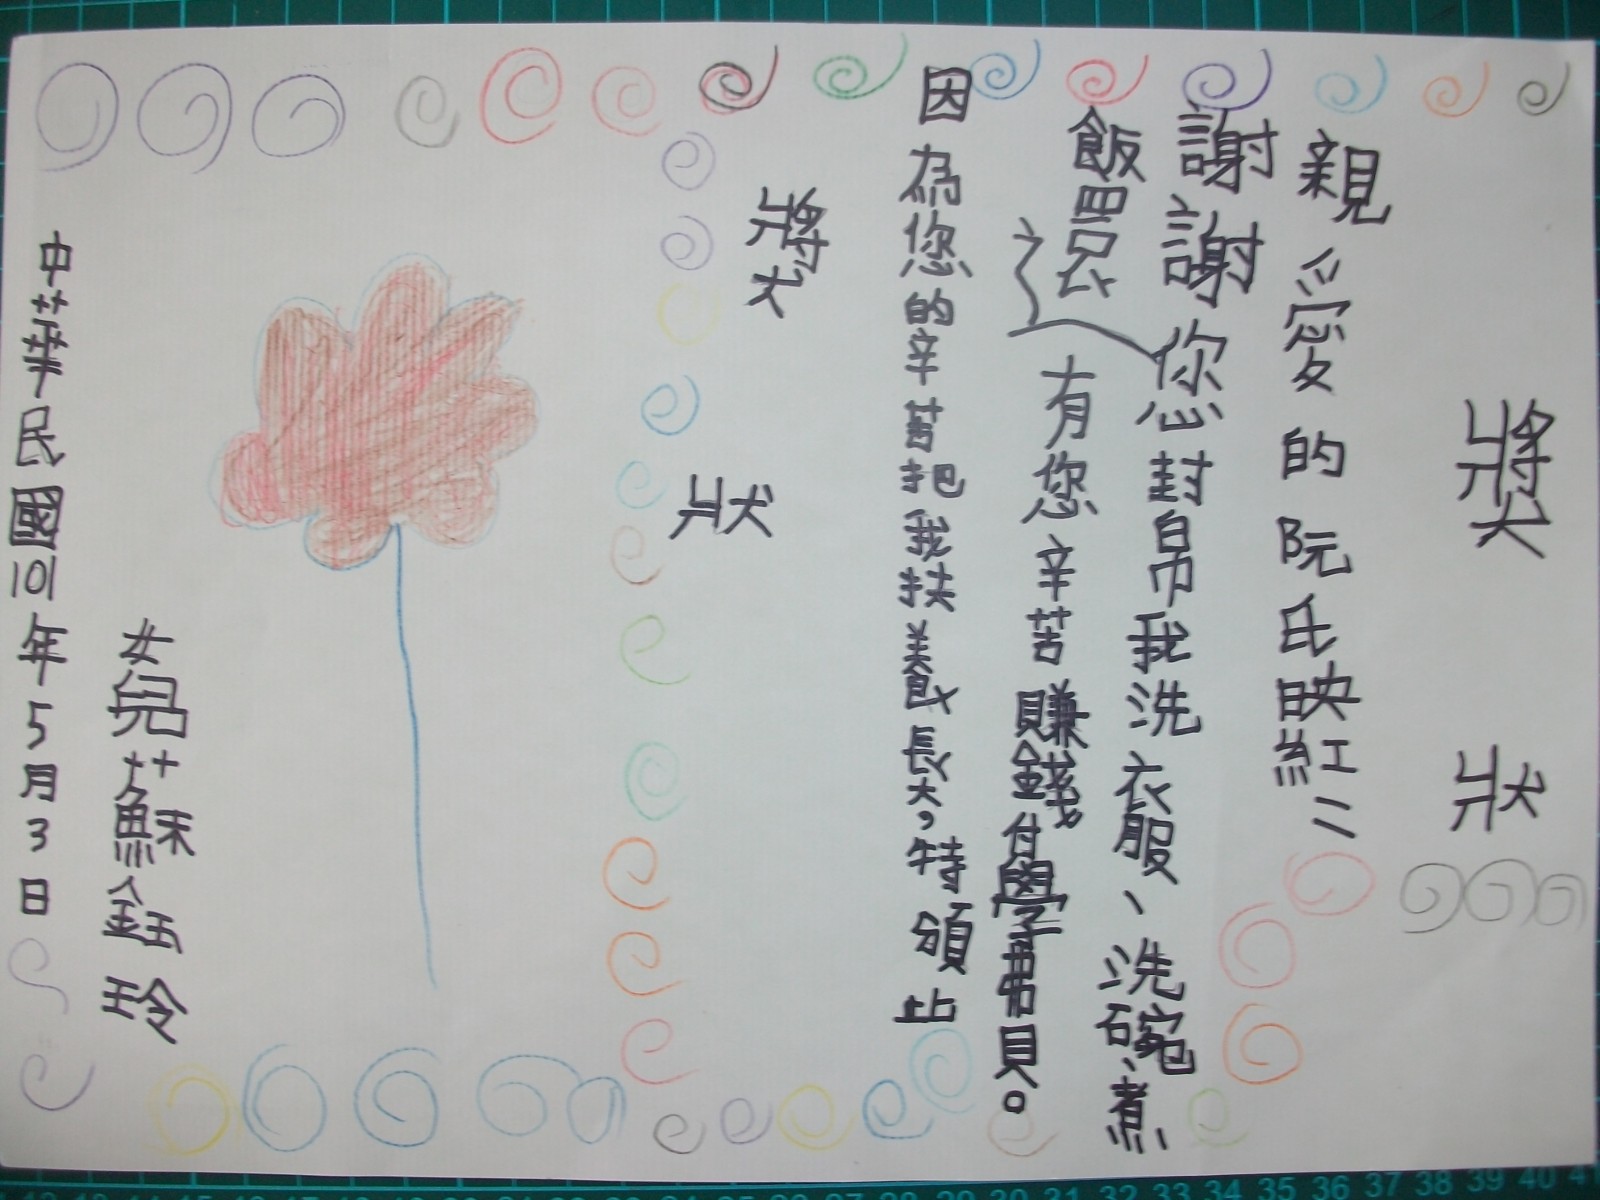 獎狀
親愛的阮氏映紅：
謝謝您幫我洗衣服、洗碗、煮
飯還有您辛苦賺錢付學費。
因為您的辛苦把我扶養長大，特頒此
獎狀
女兒蘇鈺玲
中華民國101年5月3日